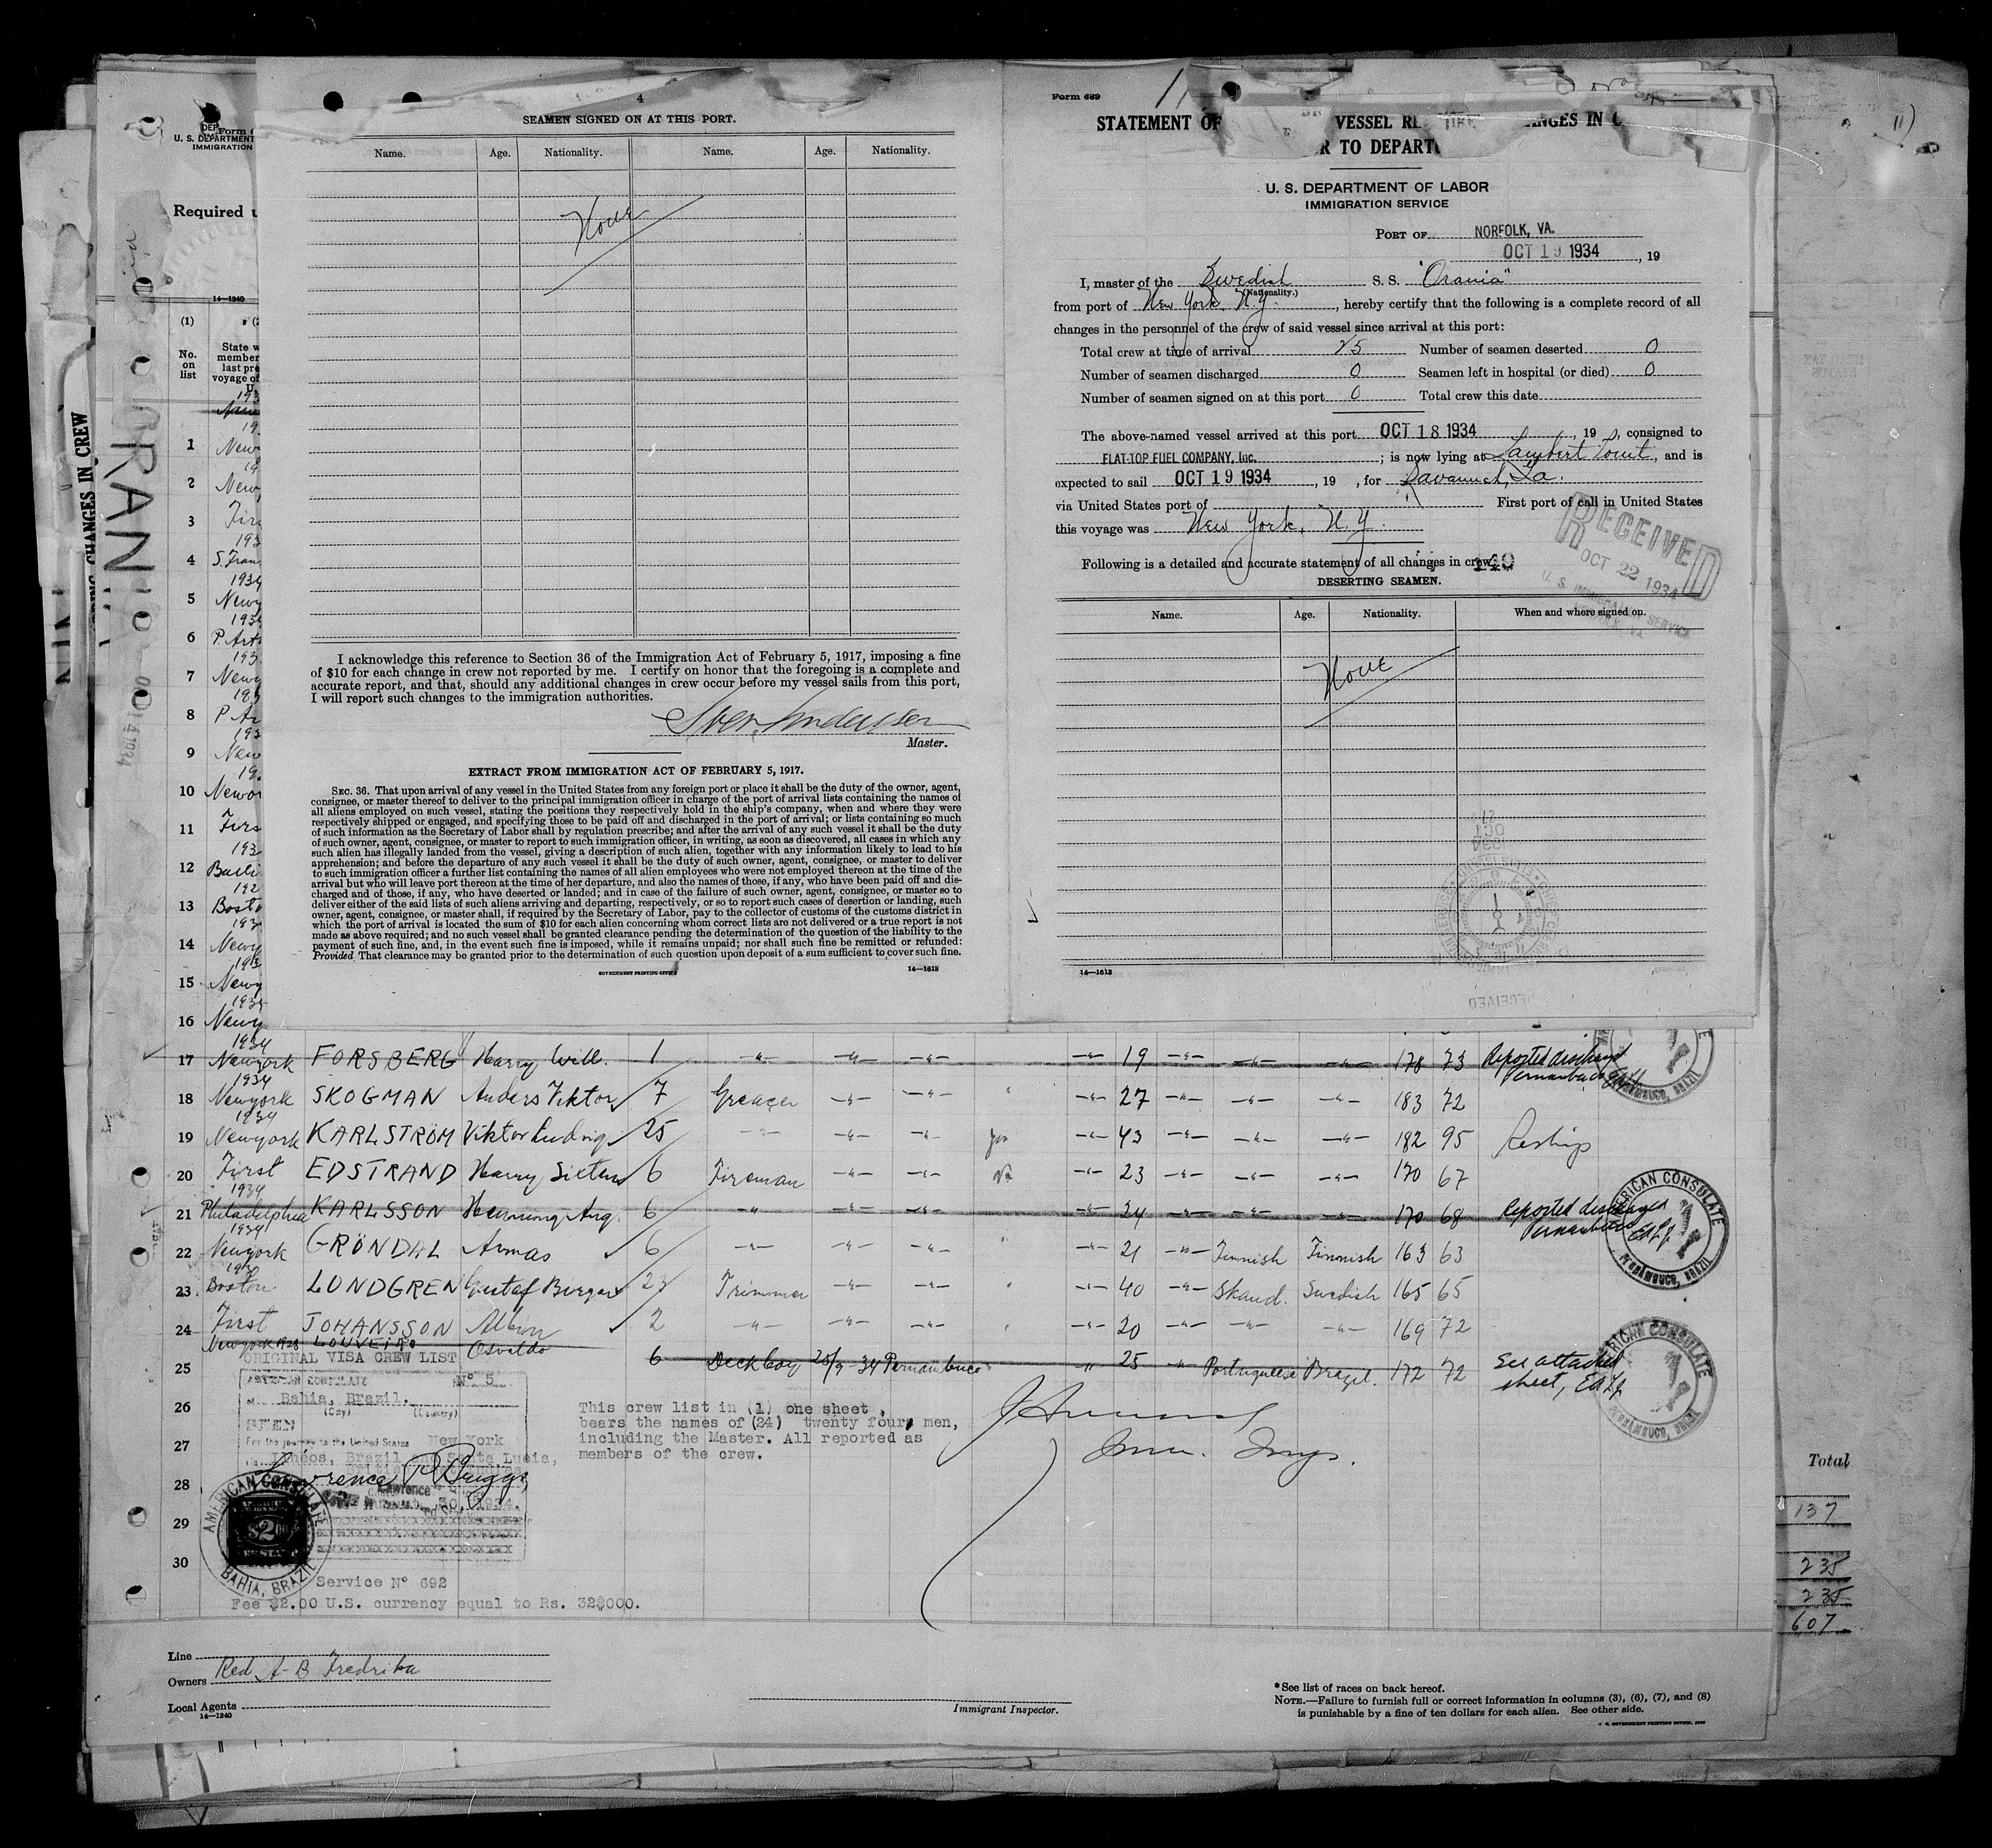 4
SEAMEN SIGNED ON AT THIS PORT.
Name. Age. Nationality. Name. Age. Nationality.
None
I acknowledge this reference to Section 36 of the Immigration Act of February 5, 1917, imposing a fine
of $10 for each change in crew not reported by me. I certify on honor that the foregoing is a complete and
accurate report, and that, should any additional changes in crew occur before my vessel sails from this port,
I will report such changes to the immigration authorities.
Master.
EXTRACT FROM IMMIGRATION ACT OF FEBRUARY 5, 1917.
SEC. 36. That upon arrival of any vessel in the United States from any foreign port or place it shall be the duty of the owner, agent,
consignee, or master thereof to deliver to the principal immigration officer in charge of the port of arrival lists containing the names of
all aliens employed on such vessel, stating the positions they respectively hold in the ship's company, when and where they were
respectively shipped or engaged, and specifying those to be paid off and discharged in the port of arrival; or lists containing so much
of such information as the Secretary of Labor shall by regulation prescribe; and after the arrival of any such vessel it shall be the duty
of such owner, agent, consignee, or master to report to such immigration officer, in writing, as soon as discovered, all cases in which any
such alien has illegally landed from the vessel, giving a description of such alien, together with any information likely to lead to his
apprehension; and before the departure of any such vessel it shall be the duty of such owner, agent, consignee, or master to deliver
to such immigration officer a further list containing the names of all alien employees who were not employed thereon at the time of the
arrival but who will leave port thereon at the time of her departure, and also the names of those, if any, who have been paid off and dis-
charged and of those, if any, who have deserted or landed; and in case of the failure of such owner, agent, consignee, or master so to
deliver either of the said lists of such aliens arriving and departing, respectively, or so to report such cases of desertion or landing, such
owner, agent, consignee, or master shall, if required by the Secretary of Labor, pay to the collector of customs of the customs district in
which the port of arrival is located the sum of $10 for each alien concerning whom correct lists are not delivered or a true report is not
made as above required; and no such vessel shall be granted clearance pending the determination of the question of the liability to the
payment of such fine, and, in the event such fine is imposed, while it remains unpaid; nor shall such fine be remitted or refunded:
Provided That clearance may be granted prior to the determination of such question upon deposit of a sum sufficient to cover such fine.
GOVERNMENT PRINTING OFFICE 14—1613
Form 689
STATEMENT OF VESSEL ANGES IN C
R TO DEPART
U. S. DEPARTMENT OF LABOR
IMMIGRATION SERVICE
PORT OF NORFOLK, VA.
OCT 19 1934, 19
I, master of the Swedish S. S. "Orania"
(Nationality.)
from port of New York, N.Y., hereby certify that the following is a complete record of all
changes in the personnel of the crew of said vessel since arrival at this port:
Total crew at time of arrival 25 Number of seamen deserted 0
Number of seamen discharged 0 Seamen left in hospital (or died) 0
Number of seamen signed on at this port 0 Total crew this date
The above-named vessel arrived at this port OCT 18 1934, 19 , consigned to
FLAT-TOP FUEL COMPANY, Inc. ; is now lying at Lambert Point, and is
expected to sail OCT 19 1934, 19 , for Savannah, Ga.
via United States port of First port of call in United States
this voyage was New York, N.Y.
Following is a detailed and accurate statement of all changes in crew:
DESERTING SEAMEN.
RECEIVED
OCT 22 1934
Name. Age. Nationality. When and where signed on.
None
14—1613
U. S. DEPARTMENT
IMMIGRATION
Required
14—1240
CHANGES IN CREW
(1)
No. on list
State w
member
last pre
voyage of
1 New
2 New
3 Fir
4 S. Fran
5 Newy
6 P. Art
7 Newy
8 P Ar
9 New
10 Newor
11 Firs
12 Balti
13 Bosto
14 Newy
15 Newy
16 Newy
17 1934 Newyork FORSBERG Harry Will. 1 19 178 73 Reported discharged Pernambuco
18 1934 Newyork SKOGMAN Anders Viktor 7 Greaser 27 183 72
19 1934 Newyork KARLSTRÖM Viktor Ludvig 25 yes 43 182 95 Reships
20 First EDSTRAND Harry Sixten 6 Fireman No 23 170 67
21 1934 Philadelphia KARLSSON Henning Aug. 6 24 170 68 Reported discharged Pernambuco
22 1934 Newyork GRÖNDAL Armas 6 21 Finnish Finnish 163 63
23 Boston LUNDGREN Gustaf Birger 27 Trimmer 40 Skand. Swedish 165 65
24 First JOHANSSON Albin 2 20 169 72
25 Newyork 1928 LOUVEIRO Osvaldo 6 Deckboy 25/9-34 Pernambuco 25 Portuguese Brazil. 172 72 See attached sheet,
AMERICAN CONSULATE PERNAMBUCO, BRAZIL
ORIGINAL VISA CREW LIST
AMERICAN CONSULATE Nº 5
Bahia, Brazil.
(City) (Country)
SEEN
For the journey to the United States New York
Brazil and Santa Lucia,
Lawrence P Briggs
26
27
28
29
30
This crew list in (1) one sheet,
bears the names of (24) twenty four, men,
including the Master. All reported as
members of the crew.
Imm. Insp.
AMERICAN CONSULATE
BAHIA, BRAZIL
Service Nº 692
Fee $2.00 U.S. currency equal to Rs. 32$000.
Line
Owners Red. A-B Fredrika
Local Agents
14—1240
Immigrant Inspector.
*See list of races on back hereof.
NOTE.—Failure to furnish full or correct information in columns (3), (6), (7), and (8)
is punishable by a fine of ten dollars for each alien. See other side.
Total
137
235
235
607